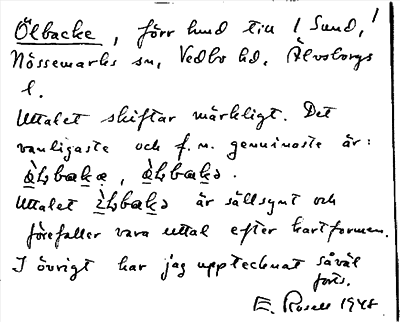 Ölbacke, förr hmd till 1 Sund,
Nössemarks sn, Vedbo hd, Älvsborgs
l.
Uttalet skiftar märkligt. Det
vanligaste och f.n. genuinaste är:
Uttalet är sällsynt och
förefaller vara uttal efter kartformen.
I övrigt har jag upptecknat såväl
forts.
E. Rosell 1948